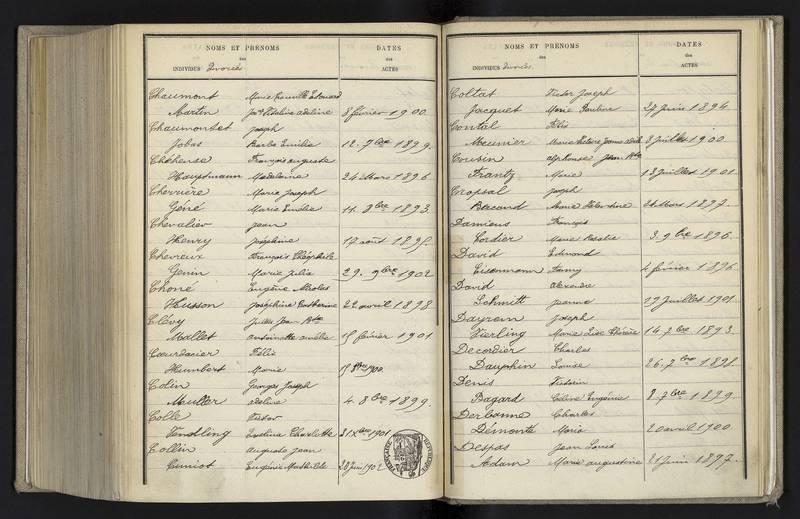 NOMS ET PRÉNOMS
des
INDIVIDUS Divorcés
DATES
des
ACTES
Chaumont Marie Camille Edouard
Martin Jne Vitaline adeline 8 février 1900.
Chaumontet Joseph
Jobas Barbe Emilie 12. 7bre 1899.
Chcheuse François auguste
Hauptmann Madeleine 24 Mars 1896
Chevrière Marie Joseph
Géné Marie Emélie 11. 8bre 1893.
Chevalier Jean
Henry Joséphine 17 août 1895.
Chevreux François Théophile
Genin Marie Julie 29. 9bre 1902
Choné Eugène Nicolas
Husson Joséphine Catherine 22 avril 1898
Clévy Jules Jean Bte
Mallet antoinette amélie 15 février 1901
Cœurdacier Félix
Humbert Marie 1900.
Colin Georges Joseph
Muller adeline 4. 8bre 1899.
Colle Victor
Tendling Eveline Charlotte 31 Xbre 1901
Collin auguste Jean
Cuniot Eugénie Mathilde 28 Juin 1902
NOMS ET PRÉNOMS
des
INDIVIDUS Divorcés
DATES
des
ACTES
Coltat Victor Joseph
Jacquet Marie Pauline 27 Juin 1894.
Contal Félix
Meunier Marie 3 Juillet 1900.
Cousin alphonse Jean Bte
Frantz Marie 13 Juillet 1901.
Cropsal Joseph
Bacand Anne Valentine 24 Mars 1897.
Damiens François
Cordier Marie Rosalie 3. 9bre 1896.
David Edmond
Eisenmann Fanny 4 février 1896
David alexandre
Schmitt Jeanne 27 Juillet 1901.
Dayren Joseph
Vierling Marie Lise Thérèse 14. 7bre 1893.
Decordier Charles
Dauphin Louise 26. 7bre 1898.
Denis Victorin
Bagard Céline Eugénie 2 7bre 1899.
Derbonne Charles
Démonté Marie 20 avril 1900.
Despas Jean Louis
Adam Marie augustine 21 Juin 1897.